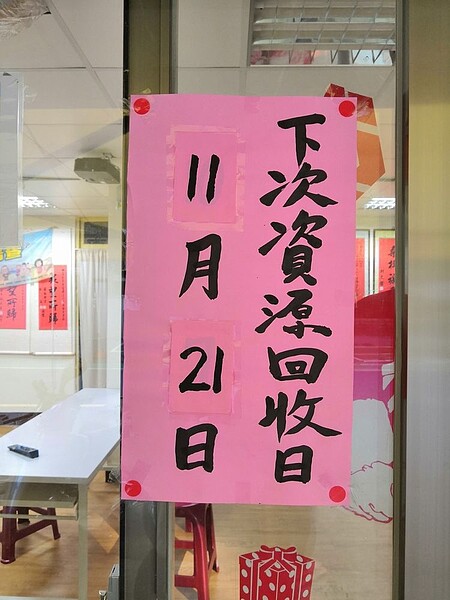 下次資源回收日
11月21日